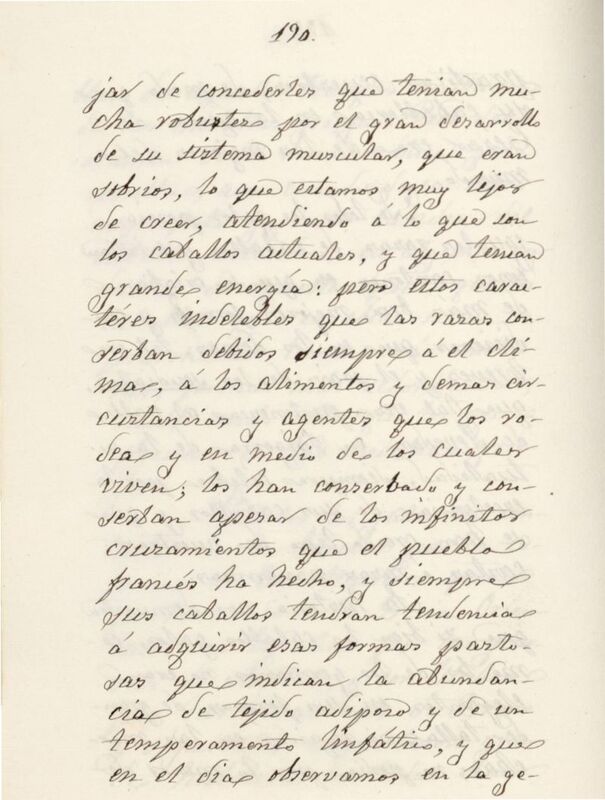 190.
jar de concederles que tenian mu-
cha robustes por el gran desarrollo
de su sistema muscular, que eran
sobrios, lo que estamos muy lejos
de creer, atendiendo á lo que son
los caballos actuales, y que tenian
grande energía: pero estos carac-
téres indelebles que las razas con-
serban debidos siempre á el cli-
ma, á los alimentos y demas cir-
custancias y agentes que los ro-
dea y en medio de los cuales
viven; los han conserbado y con-
serban apesar de los infinitos
cruzamientos que el pueblo
francés ha hecho, y siempre
sus caballos tendran tendencia
á adquirir esas formas pasto-
sas que indican la abundan-
cia de tejido adiposo y de un
temperamento linfático, y que
en el dia observamos en la ge-